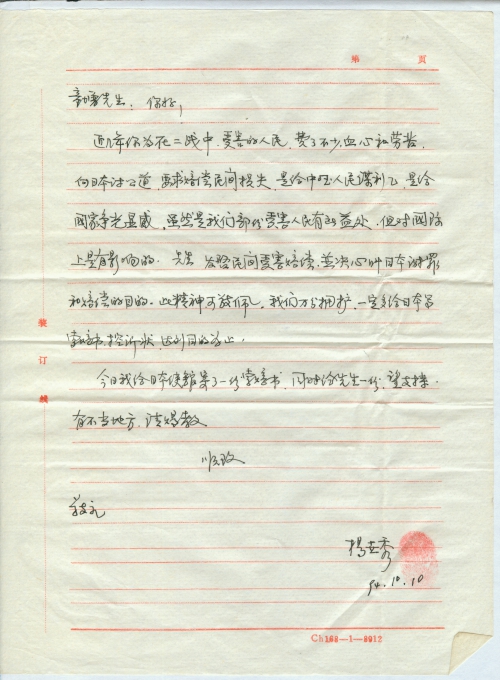 第 页
先生：你好，
近几年你为在二战中受害的人民，费了不少血心和劳苦，
向日本讨公道，要求赔偿民间损失，是给中国人民谋利，是给
国家争光显威，虽然是我们部份受害人民有的益处，但对国际
上是有影响的。先生 发啓民间受害赔偿，并决心叫日本谢罪
和赔偿的目的。此精神可敬佩。我们万分拥护，一定多给日本写
索赔书，控诉状，达到目的为止。
今日我给日本使馆寄了一份索赔书，同时给先生一份，望支持。
有不当地方，请赐教
顺致
敬礼
杨世秀
94.10.10
装
订
线